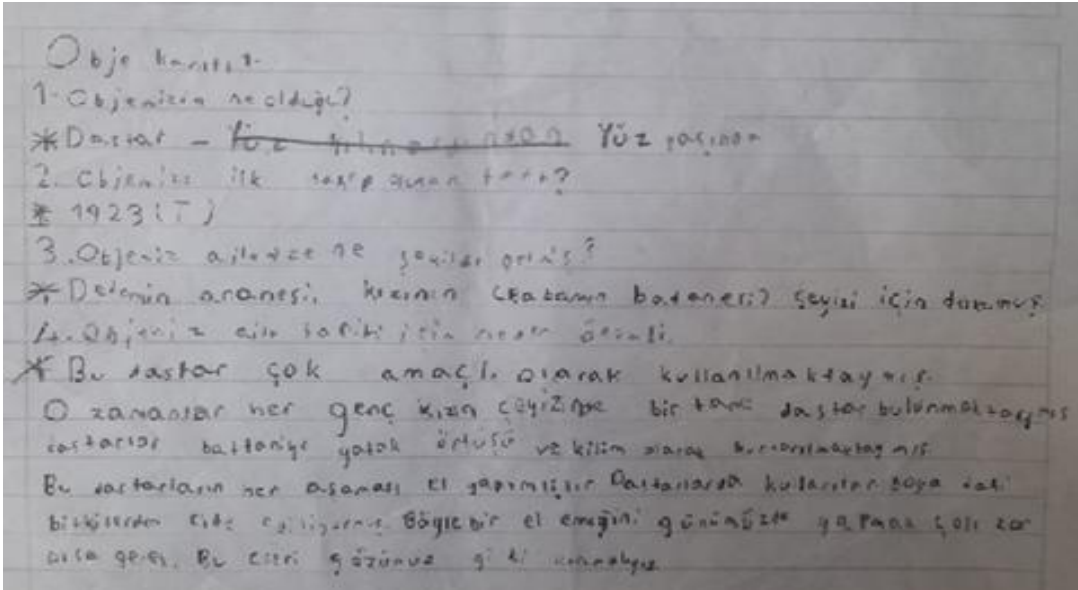 Obje
1- Objenizin ne olduğu?
* Dastar - Yüz yaşında
2. Objenize ilk sahip olunan tarih?
* 1923 (T)
3. Objeniz ailenize ne şekilde gelmiş?
* Dedemin ananesi, kızının çeyizi için
4. Objeniz aile tarihi için neden önemli.
* Bu dastar çok amaçlı olarak kullanılmaktaymış.
O zamanlar her genç kızın çeyizinde bir tane dastar bulunmaktaymış
dastarlar battaniye yatak örtüsü ve kilim olarak
Bu dastarların her aşaması el yapımıdır Dastarlarda kullanılan boya dahi
bitkilerden elde ediliyormuş. Böyle bir el emeğini günümüzde yapmak çok zor
olsa gerek. Bu eseri gözümüz gibi korumalıyız